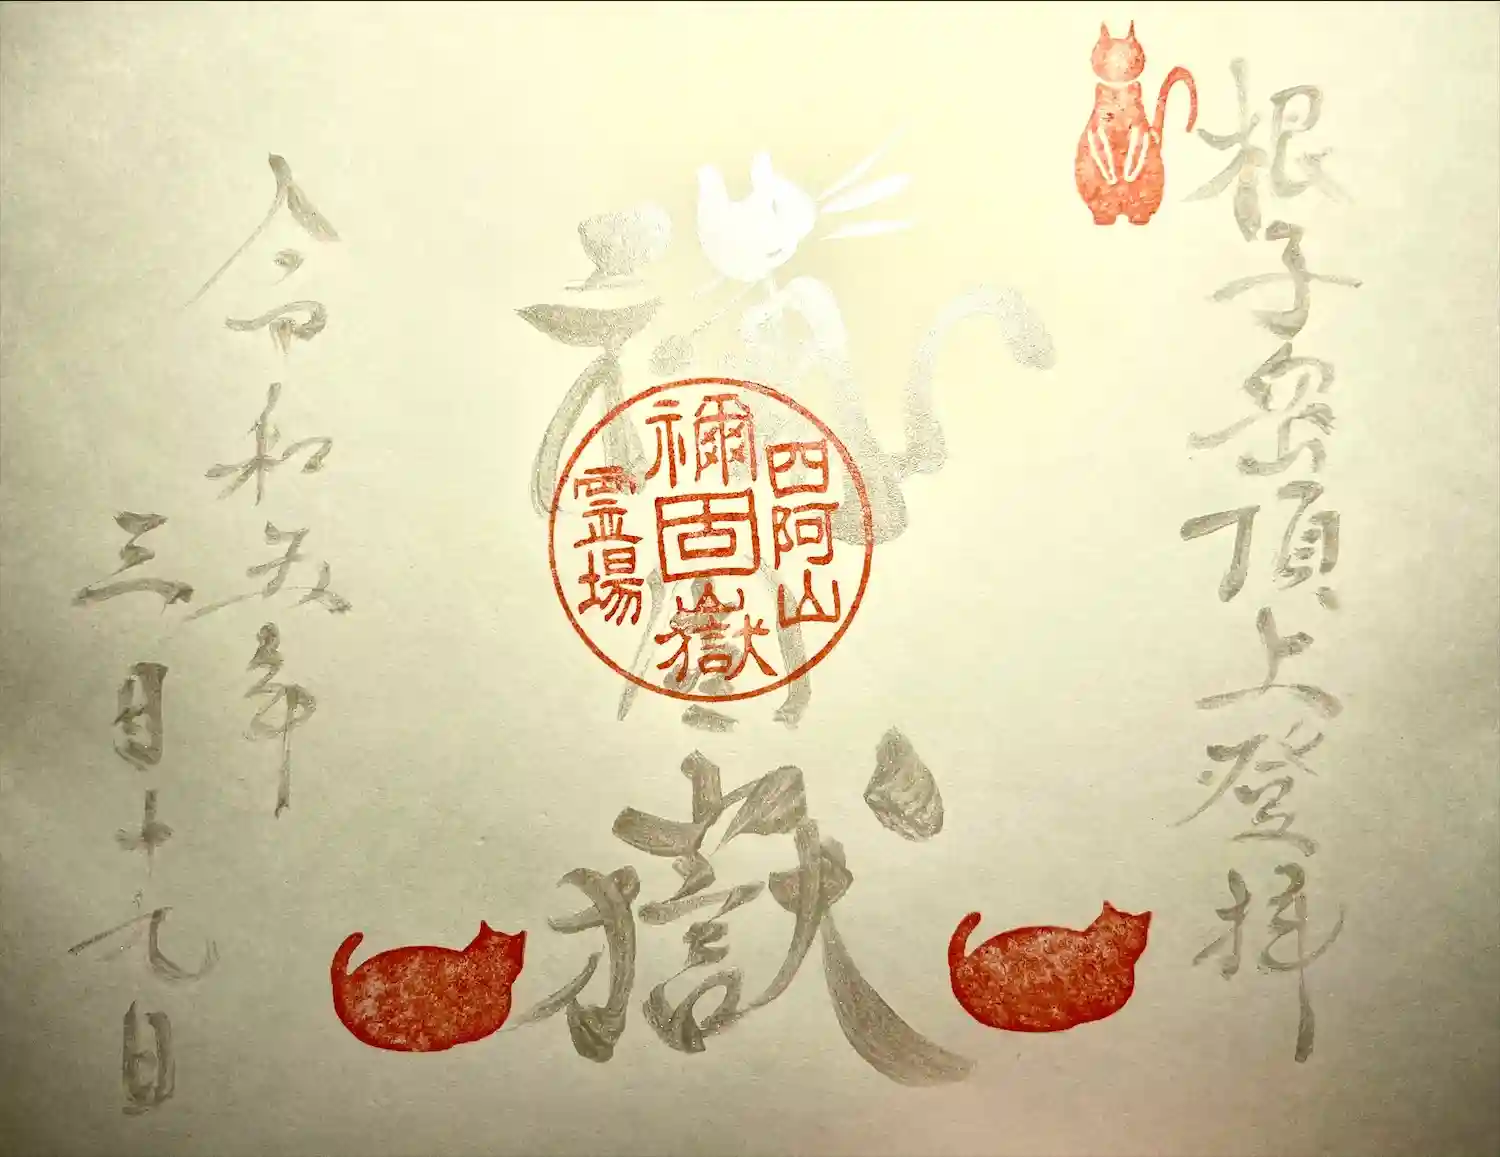 根子岳頂上登拝
嶽
四阿山
禰固嶽
霊場
令和五年
三月十九日